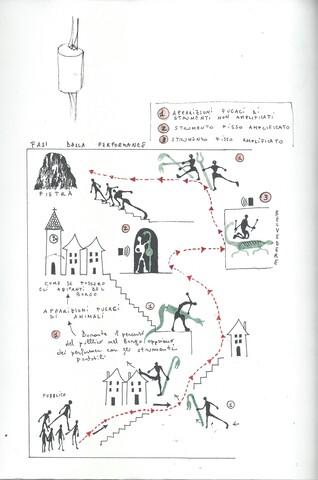 1 APPARIZIONI FUGACI DI
STRUMENTI NON AMPLIFICATI
2 STRUMENTO FISSO AMPLIFICATO
3 STRUMENTO FISSO AMPLIFICATO
FASI DALLA PERFORMANCE
1
3
PIETRA
BELVEDERE
2
COME SE FOSSERO
GLI ABITANTI DEL
BORGO
1
APPARIZIONI FUGACI
DI ANIMALI
Durante il percorso
del pubblico nel Borgo appaiono
dei performer con gli strumenti
portabili
PUBBLICO
1